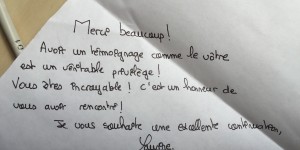 Merci beaucoup!
Avoir un témoignage comme le vôtre
est un véritable privilège!
Vous êtes incroyable! c'est un honneur de
vous avoir rencontré!
Je vous souhaite une excellente continuation,